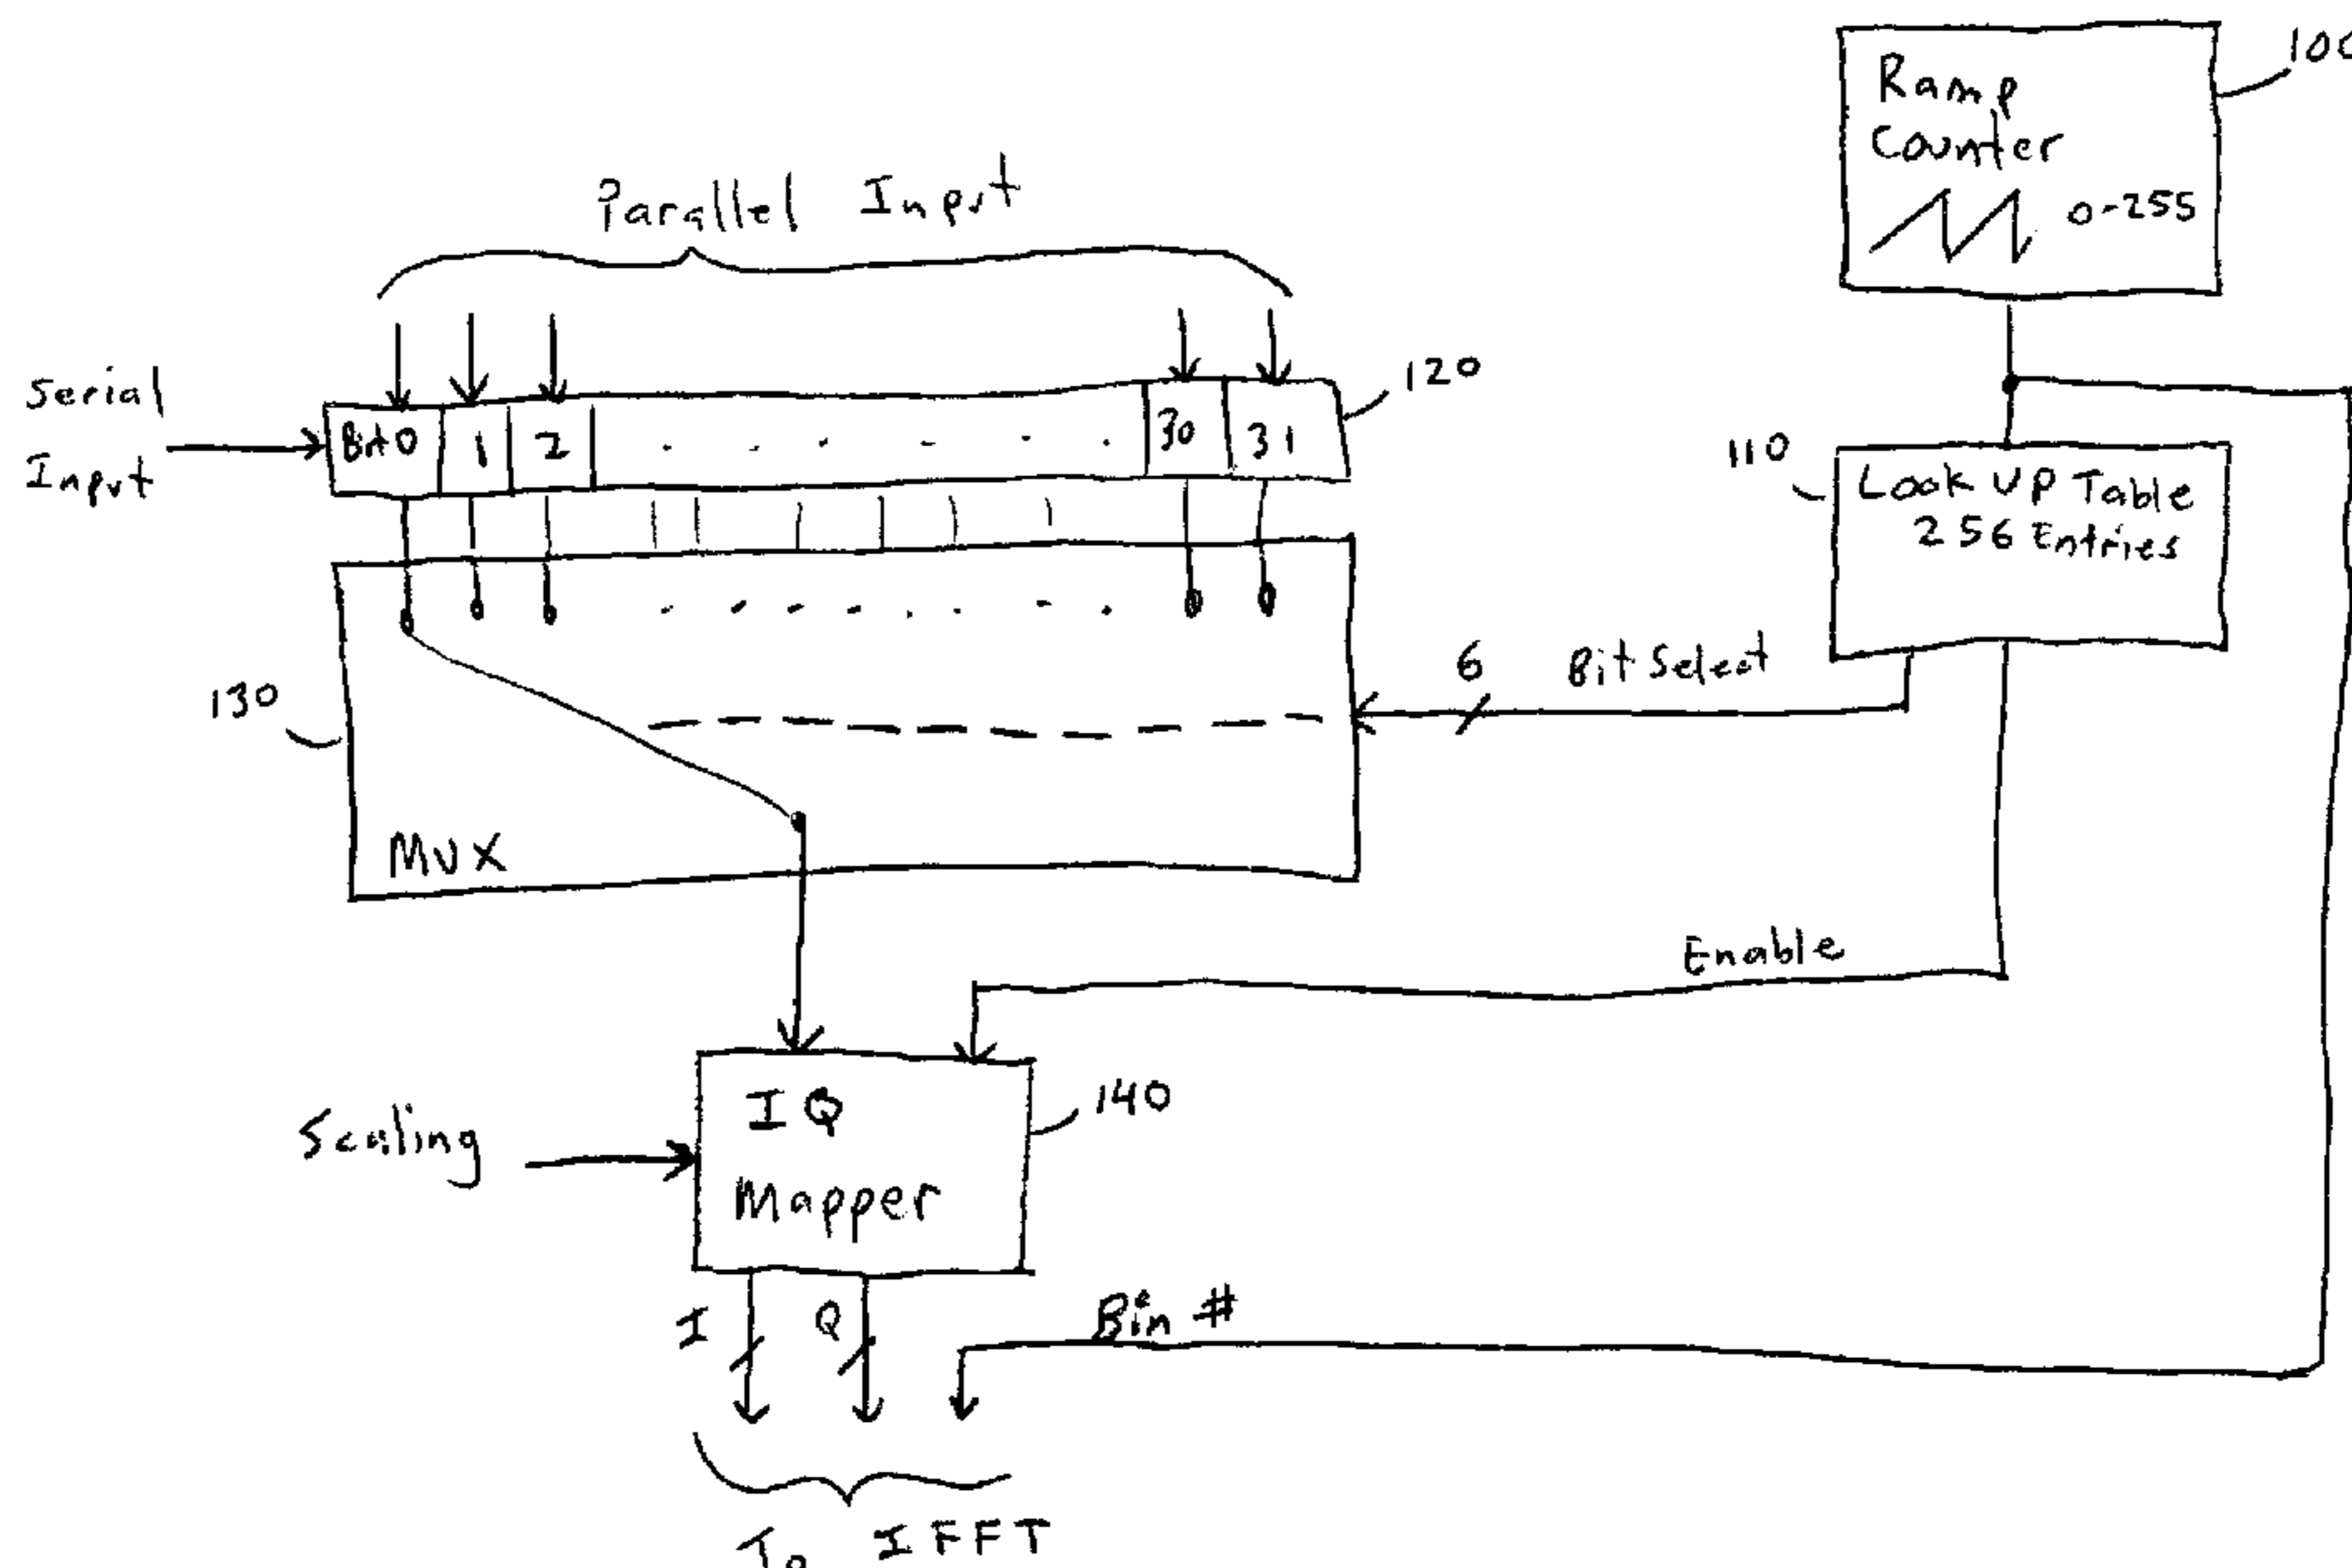 Ramp
Counter
0-255
100
Parallel Input
Serial
Input
Bit 0 1 2 30 31
120
110
Look Up Table
256 Entries
6
Bit Select
130
MUX
Enable
IQ
Mapper
140
Scaling
I
Q
Bin #
To IFFT